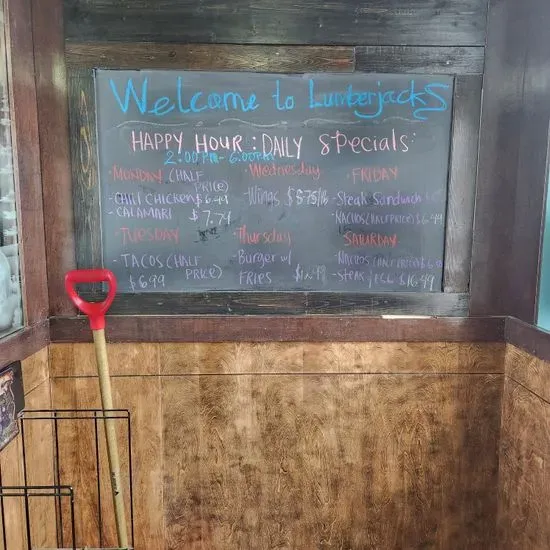 Welcome to Lumberjacks
HAPPY HOUR: DAILY Specials:
2:00 PM - 6:00 PM
MONDAY (HALF PRICE)
- CHILI CHICKEN $6.49
- CALAMARI $7.74
TUESDAY
- TACOS (HALF PRICE)
$6.99
Wednesday
- Wings
Thursday
- Burger w/
FRIES
FRIDAY
- Steak Sandwich
- NACHOS (HALF PRICE) $6.49
SATURDAY
- NACHOS (HALF PRICE)
- STEAK / EGG $16.99